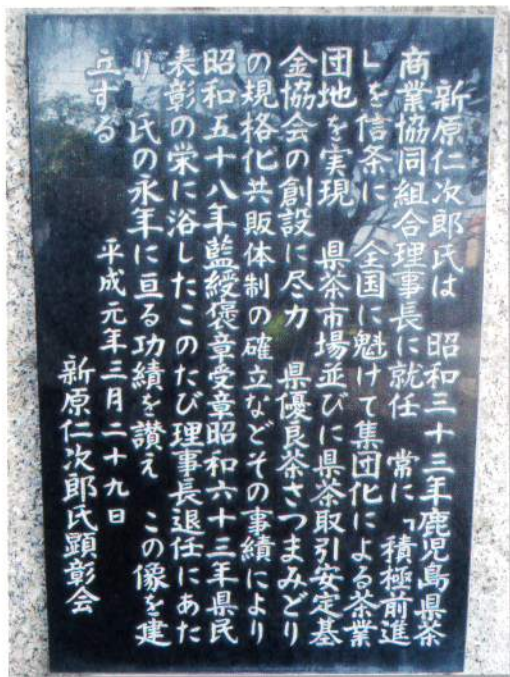 新原仁次郎氏は 昭和三十三年鹿児島県茶
商業協同組合理事長に就任 常に「積極前進
」を信条に 全国に魁けて集団化による茶業
団地を実現 県茶市場並びに県茶取引安定基
金協会の創設に尽力 県優良茶さつまみどり
の規格化共販体制の確立などその事績により
昭和五十八年藍綬褒章受章昭和六十三年県民
表彰の栄に浴したこのたび理事長退任にあた
り 氏の永年に亘る功績を讃え この像を建
立する
平成元年三月二十九日
新原仁次郎氏顕彰会